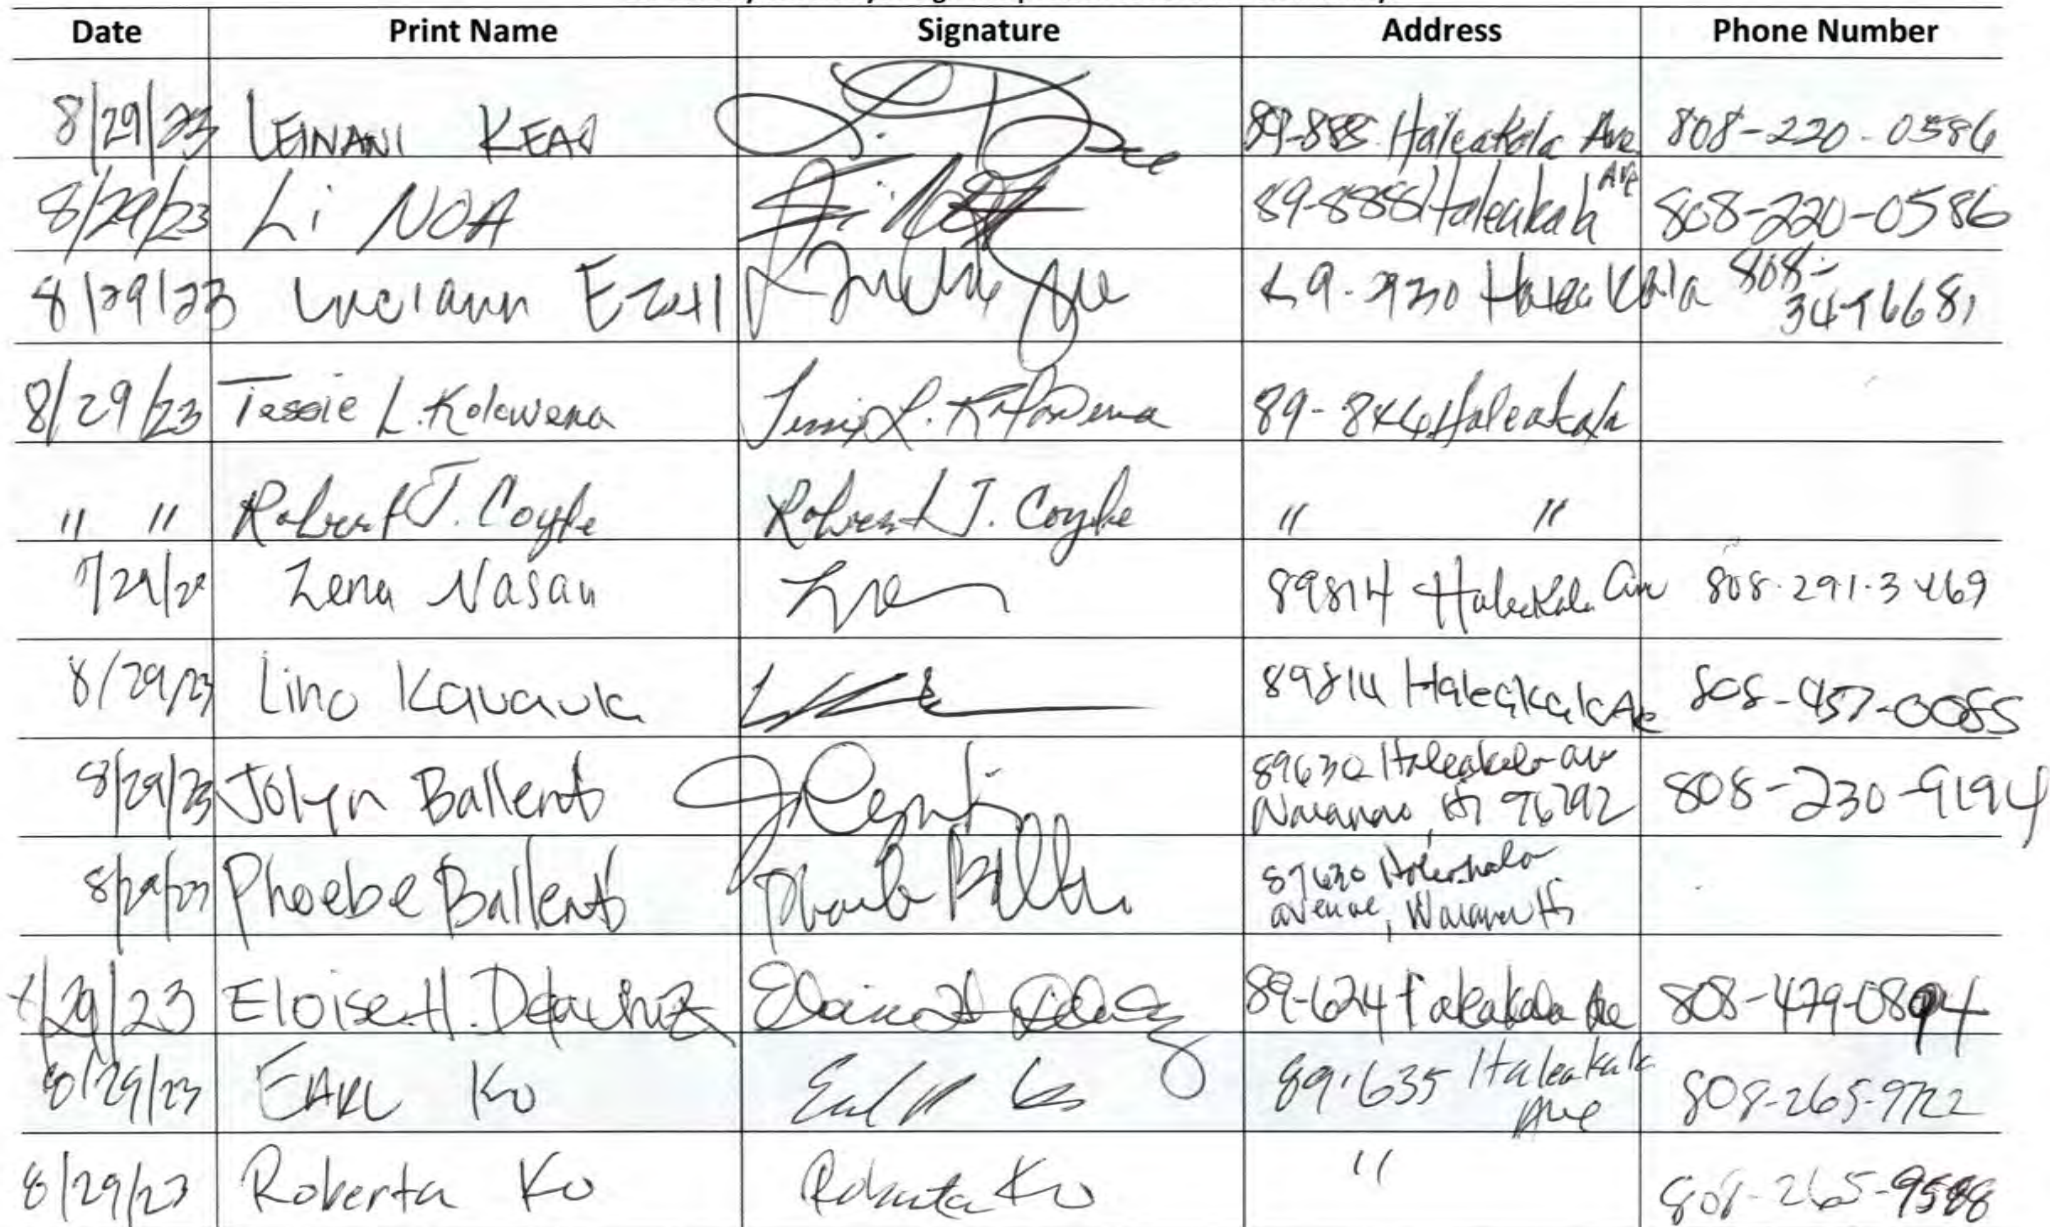 Date Print Name Signature Address Phone Number
8/29/23 LEINANI KEAO 89-888 Haleakala Ave 808-220-0586
8/29/23 Li NOA 89-888 Haleakala Ave 808-220-0586
8/29/23 Luciann Ezell Haleakala 808-
8/29/23 Tessie L. Kolowena 89-846 Haleakala
" " Robert J. Coyle Robert J. Coyle " "
Lena Nasau 89814 Haleakala 808-291-3469
8/29/23 Lino 89814 Haleakala Ave 808-457-0085
8/29/23 Jolyn Ballent 89630 Haleakala av 808-230-9194
Waianae, HI 96792
8/29/23 Phoebe Ballent Haleakala
avenue, Waianae HI
29/23 Eloise H. 89-624 Haleakala Ave 808-479-0894
8/29/23 EARL Ko Earl Ko 89-635 Haleakala Ave 808-265-9722
8/29/23 Roberta Ko Roberta Ko " 808-265-9588